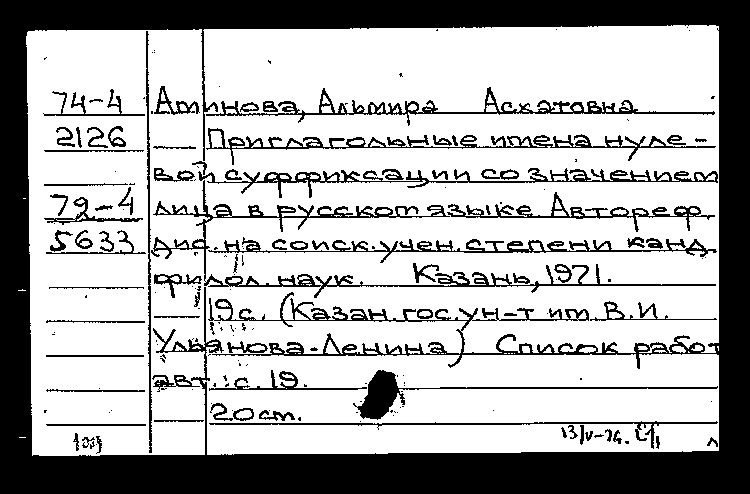 74-4 Аминова, Альмира Асхатовна
2126 Приглагольные имена нуле-
вой суффиксации со значением
72-4 лица в русском языке. Автореф.
5633 дис. на соиск. учен. степени канд.
филол. наук. Казань, 1971.
19 с. (Казан. гос. ун-т им. В.И.
Ульянова-Ленина) Список работ
авт.: с. 19.
20 см.